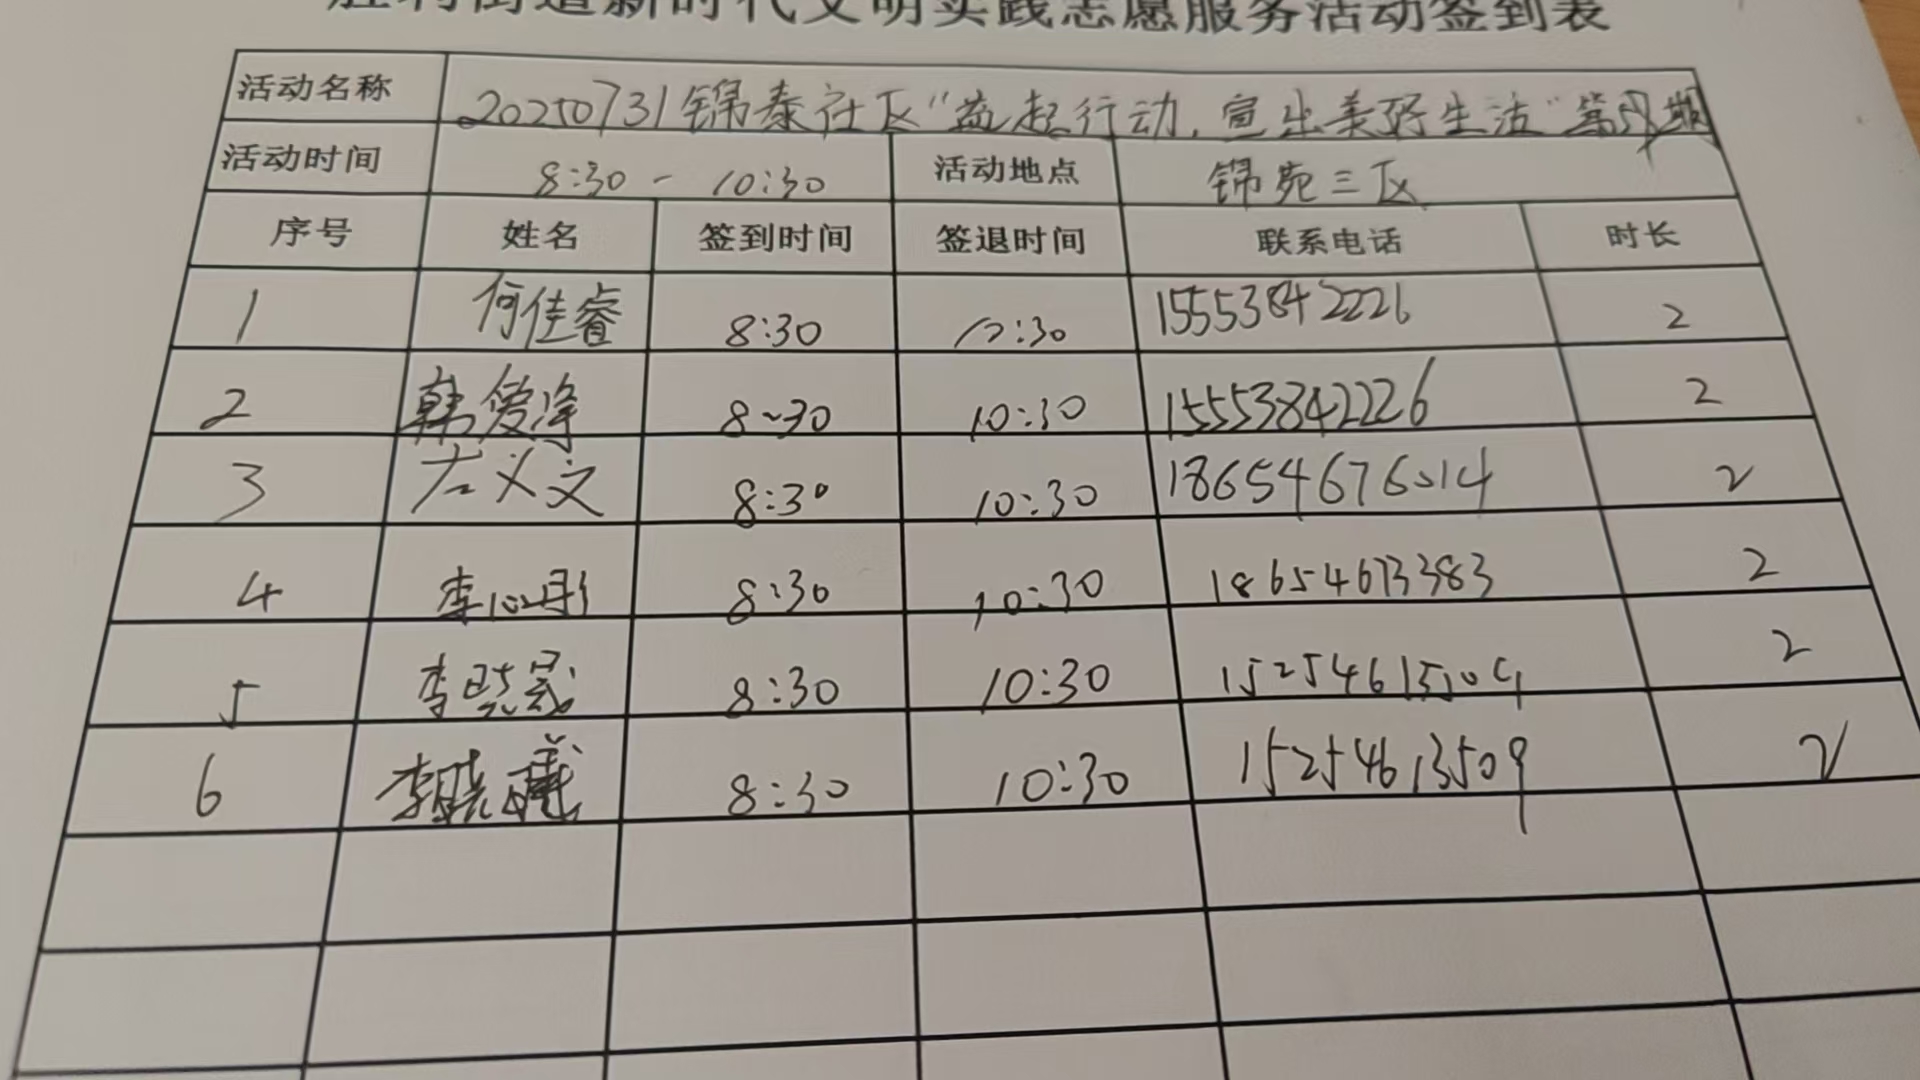 胜利街道新时代文明实践志愿服务活动签到表
活动名称 20250731锦泰社区"益起行动,宣出美好生活"第 期
活动时间 8:30 - 10:30 活动地点 锦苑三区
序号 姓名 签到时间 签退时间 联系电话 时长
1 何佳睿 8:30 10:30 15553842226 2
2 韩爱净 8~30 10:30 15553842226 2
3 左义文 8:30 10:30 2
4 李心彤 8:30 10:30 18654673383 2
5 李晓 8:30 10:30 2
6 李晓曦 8:30 10:30 15254613509 2